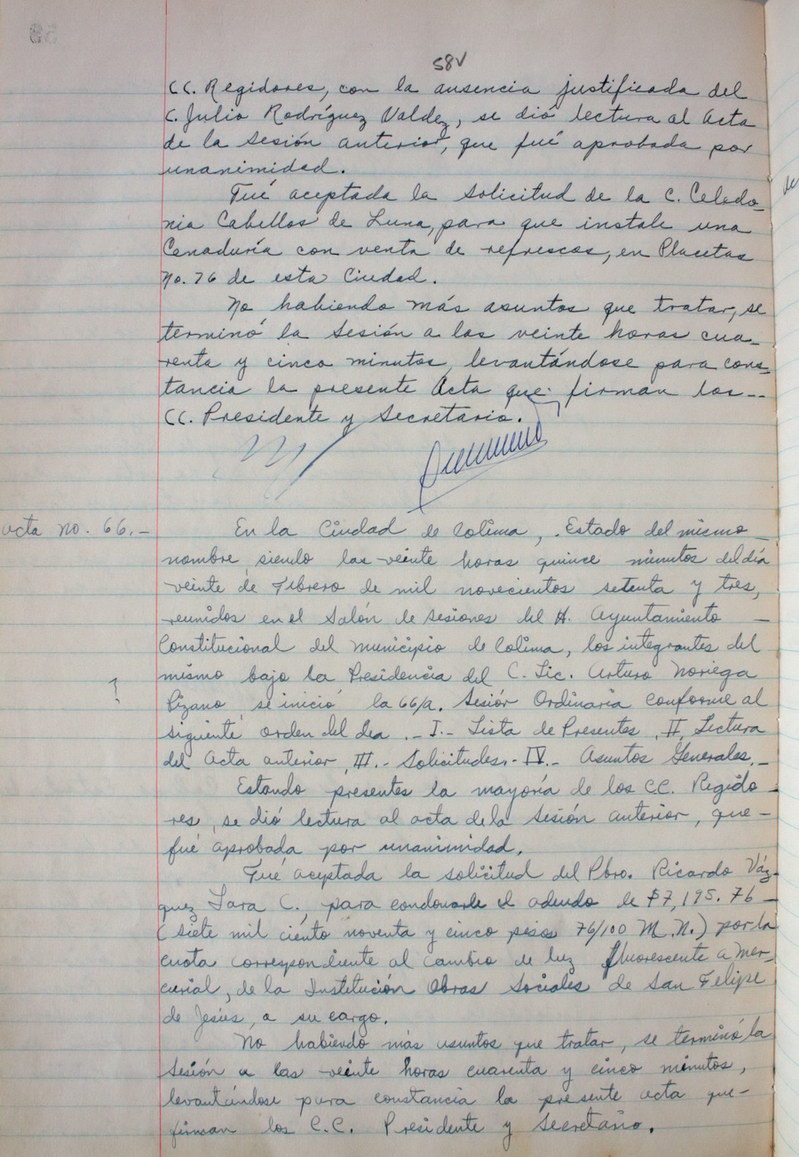 58V
CC. Regidores, con la ausencia justificada del
C. Julio Rodríguez Valdez, se dió lectura al Acta
de la Sesión anterior, que fué aprobada por
unanimidad.
Fué aceptada la solicitud de la C. Celedo-
nia Cabellos de Luna, para que instale una
Cenaduría con venta de refrescos, en Placetas
No. 76 de esta Ciudad.
No habiendo más asuntos que tratar, se
terminó la Sesión a las veinte horas cua-
renta y cinco minutos, levantándose para cons-
tancia la presente Acta que firman los--
CC. Presidente y Secretario.
acta no. 66.-
En la Ciudad de Colima, Estado del mismo
nombre, siendo las veinte horas quince minutos del día
veinte de Febrero de mil novecientos setenta y tres,
reunidos en el Salón de Sesiones del H. Ayuntamiento -
Constitucional del Municipio de Colima, los integrantes del
mismo bajo la Presidencia del C. Lic. Arturo Noriega
Pizano, se inició la 66/a. Sesión Ordinaria conforme al
siguiente orden del dea .- I.- Lista de Presentes, II, Lectura
del Acta anterior, III.- Solicitudes.- IV.- Asuntos Generales.-
Estando presentes la mayoría de los C.C. Regido-
res, se dió lectura al acta de la Sesión anterior, que-
fué aprobada por unanimidad.
Fué aceptada la solicitud del Pbro. Ricardo Váz-
quez Lara C., para condonarle el adeudo de $7,195.76-
(Siete mil ciento noventa y cinco pesos 76/100 M.N.) por la
cuota correspondiente al cambio de luz fluorescente a mer-
curial, de la Institución Obras Sociales de San Felipe
de Jesús, a su cargo.
No habiendo más asuntos que tratar, se terminó la
Sesión a las veinte horas cuarenta y cinco minutos,
levantándose para constancia la presente acta que-
firman los C.C. Presidente y Secretario.